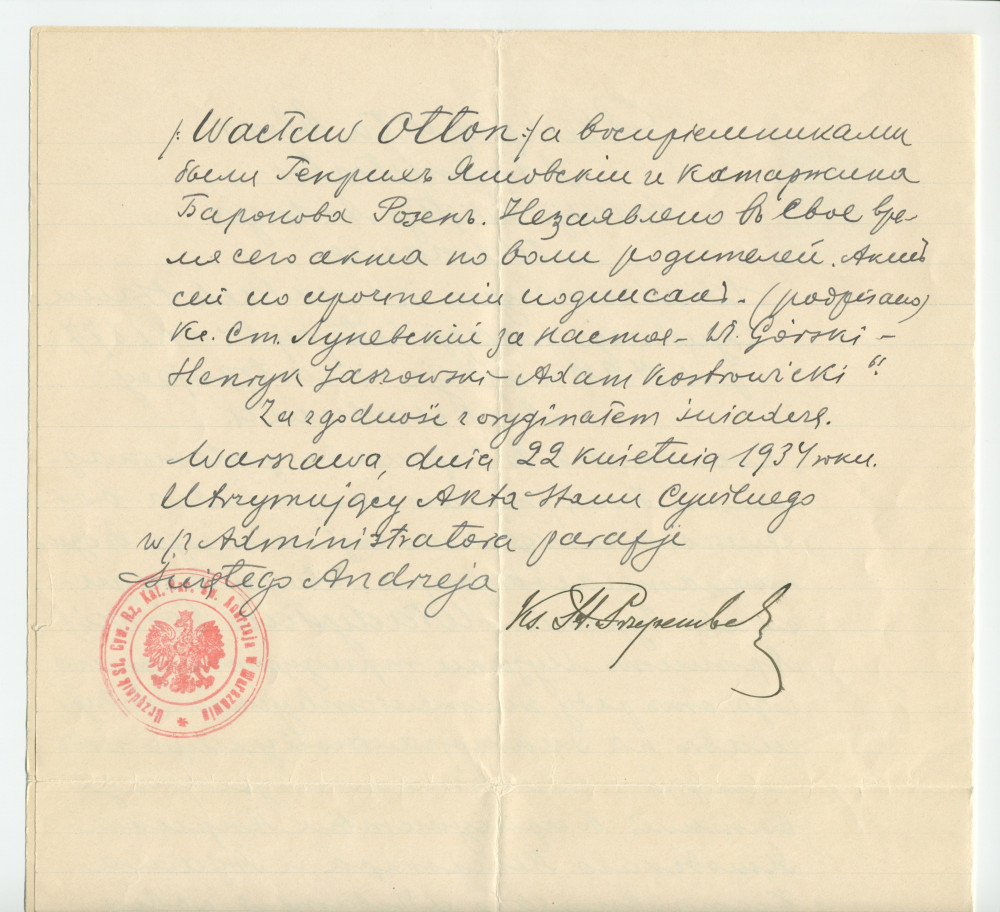 /: Wacław Otton :/ а воспріемниками
были Генрихъ Яшовскій и Катаржина
Баронова Розенъ. Незаявлено въ свое вре-
мя сего акта по воли родителей. Актъ
сей по прочтеніи подписалъ. (podpisano)
Кс. Ст. Луневскій за настоя - W. Górski -
Henryk Jaszowski - Adam Kostrowicki ".
Za zgodność z oryginałem świadczę.
Warszawa, dnia 22 kwietnia 1934 roku.
Utrzymujący Akta Stanu Cywilnego
w/z Administratora parafje
Świętego Andrzeja
Ks. St.
Urzędnik St. Cyw. Rz. Kat. Par. Św. Andrzeja w Warszawie